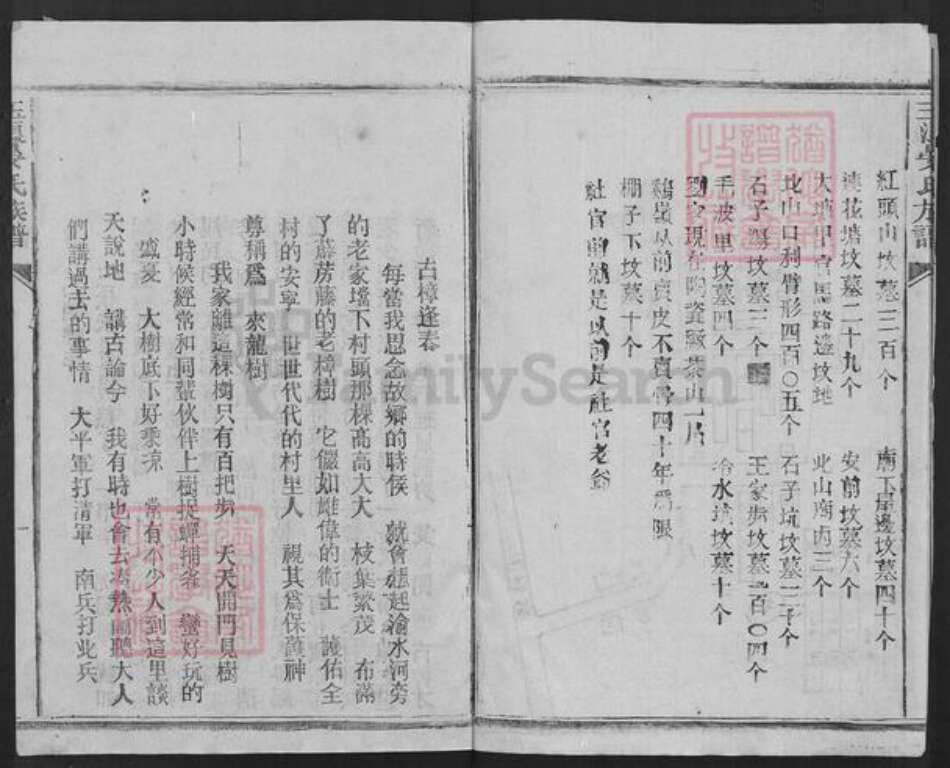 紅頭山坟墓三百个 廟下屋邊坟墓四十个
蓮花塘坟墓二十九个 安前坟墓六个
大塘 官馬路邊坟地 北山 內三个
北山口利臂形四百〇五个 石子坑坟墓三千个
石子 坟墓三个 王家步坟墓 百〇四个
毛波里坟墓四个 冷水 坟墓十个
現在 瓷 茶山一片
鷄 从前賣皮不賣骨四十年爲限
棚子下坟墓十个
社官前就是以前是社官老爺
古樟逢春
每當我思念故鄉的時候 就會想起渝水河旁
的老家壋下村頭那棵高高大大 枝葉繁茂 布滿
了藤房藤的老樟樹 它儼如雄偉的衛士 護佑全
村的安寧 世世代代的村里人 視其爲保護神
尊稱爲 來龍樹
我家離這棵樹只有百把步 天天開門見樹
小時候經常和同輩伙伴上樹捉蟬捕 蠻好玩的
盛夏 大樹底下好乘凉 常有不少人到這里談
天說地 講古論今 我有時也會去凑熱鬧聽大人
們講過去的事情 大平軍打清軍 南兵打北兵
氏族譜
FamilySearch